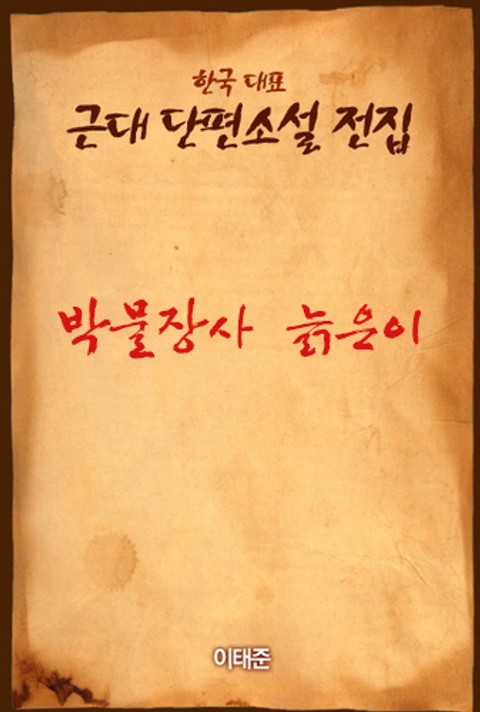 한국 대표
근대 단편소설 전집
박물장사 늙은이
이태준